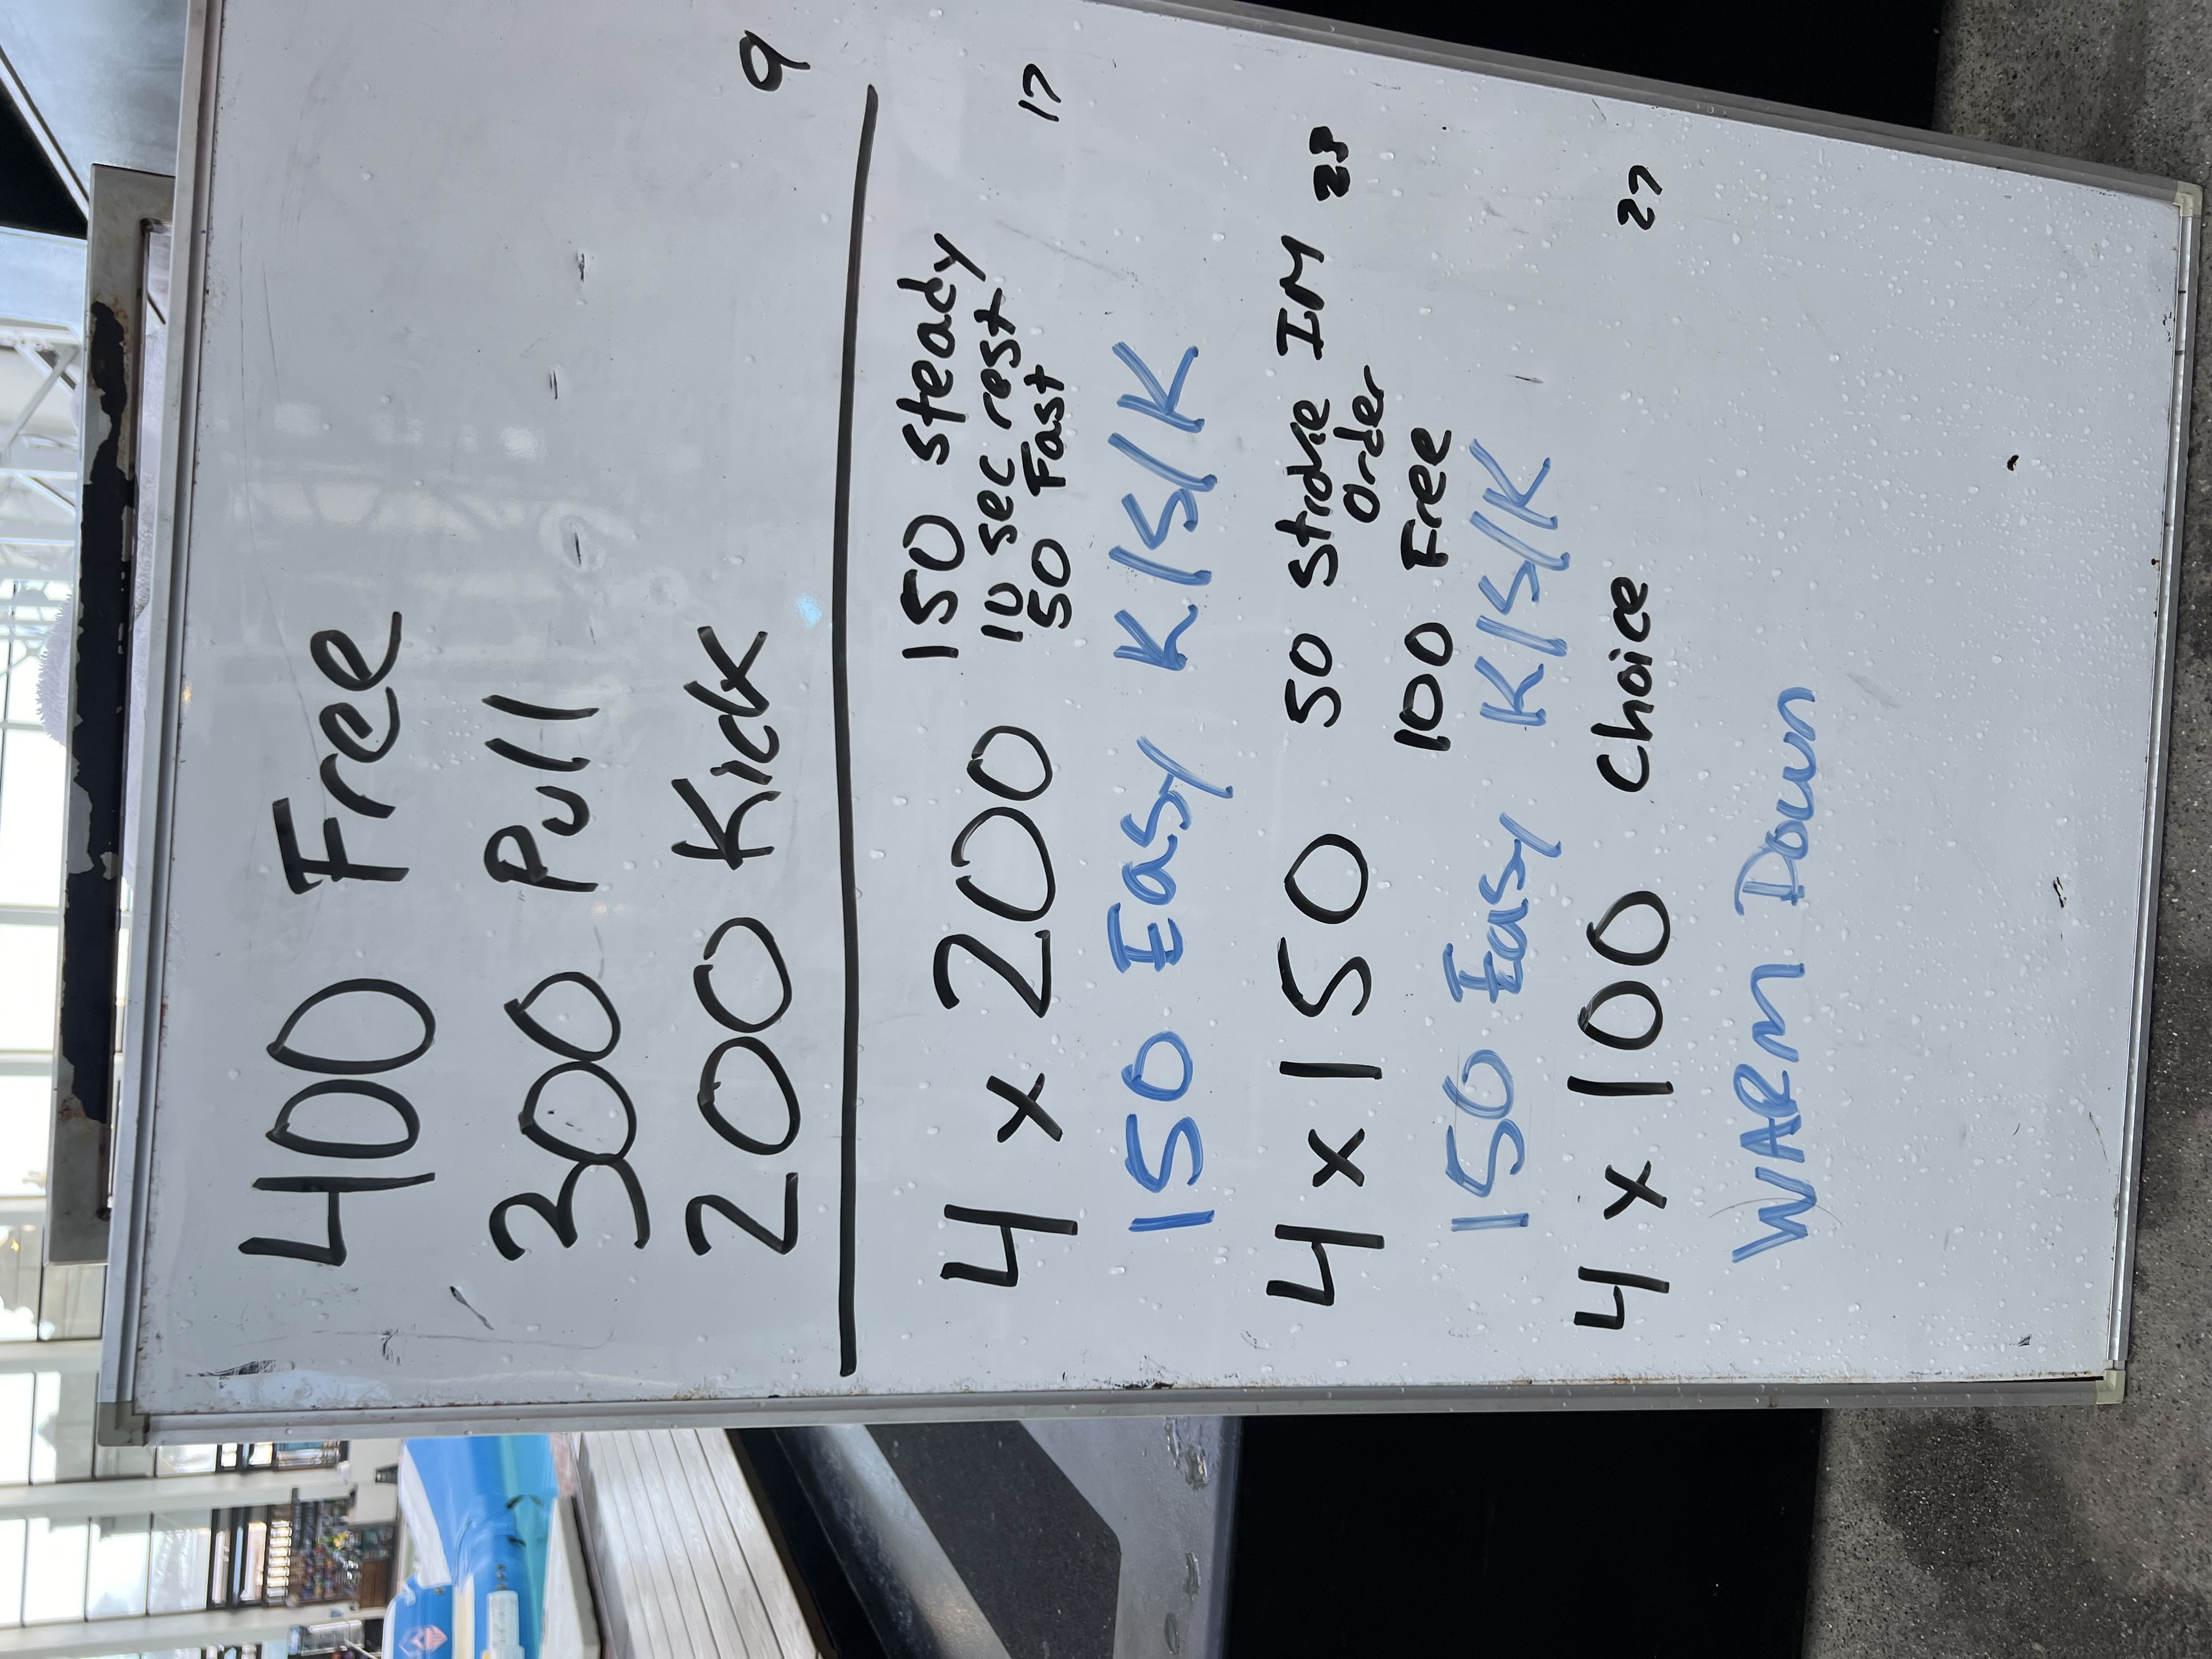 400 Free
300 Pull
200 Kick
9
4 x 200 150 steady
10 sec rest
50 Fast
17
150 Easy K/S/K
4 x 150 50 Stroke IM
Order
23
100 Free
150 Easy K/S/K
4 x 100 Choice 27
WARM Down